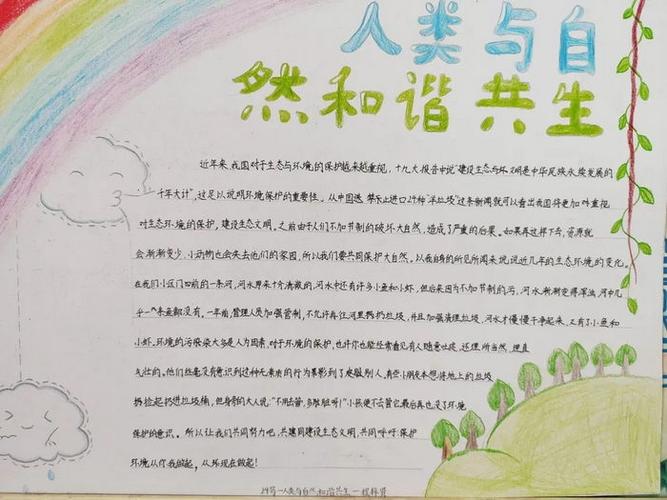 人类与自
然和谐共生
近年来,我国对于生态与环境的保护越来越重视,十九大报告中说"建设生态与环文明是中华民族永续发展的
千年大计",这足以说明环境保护的重要性。从中国选 禁止进口24种"洋垃圾"这条新闻就可以看出我国将更加重视
对生态环境的保护,建设生态文明。之前由于人们不加节制的破坏大自然,造成了严重的后果。如果再这样下去,资源就
会渐渐变少,小动物也会失去他们的家园,所以我们要共同保护大自然。以我自身的所见所闻来说说近几年的生态环境的变化。
在我们小区门口前的一条河,河水原来十个清澈的,河水中还有许多小鱼和小虾,但后来因为不加节制的污,河水渐渐变得浑浊,河中几
乎一个条鱼都没有。一年前,管理人员加强管制,不允许再往河里扔垃圾,并且加强清理垃圾,河水才慢慢干净起来,又有了小鱼和
小虾。环境的污染大多是人为因素,对于环境的保护,也许你也能经常看见有人随意吐痰,还理所当然,理直
气壮的。他们丝毫没有意识到这种无素质的行为影影到了别人,有些小朋友本想将地上的垃圾
捡起扔进垃圾桶,但身旁的大人说:"不用去管,多脏脏呀!"小孩便不去管它,最后再也没了环境
保护的意识。所以让我们共同努力吧,共建同建设生态文明,共同呼吁:保护
环境从你我做起,从环现在做起!
人类与自然和谐共生